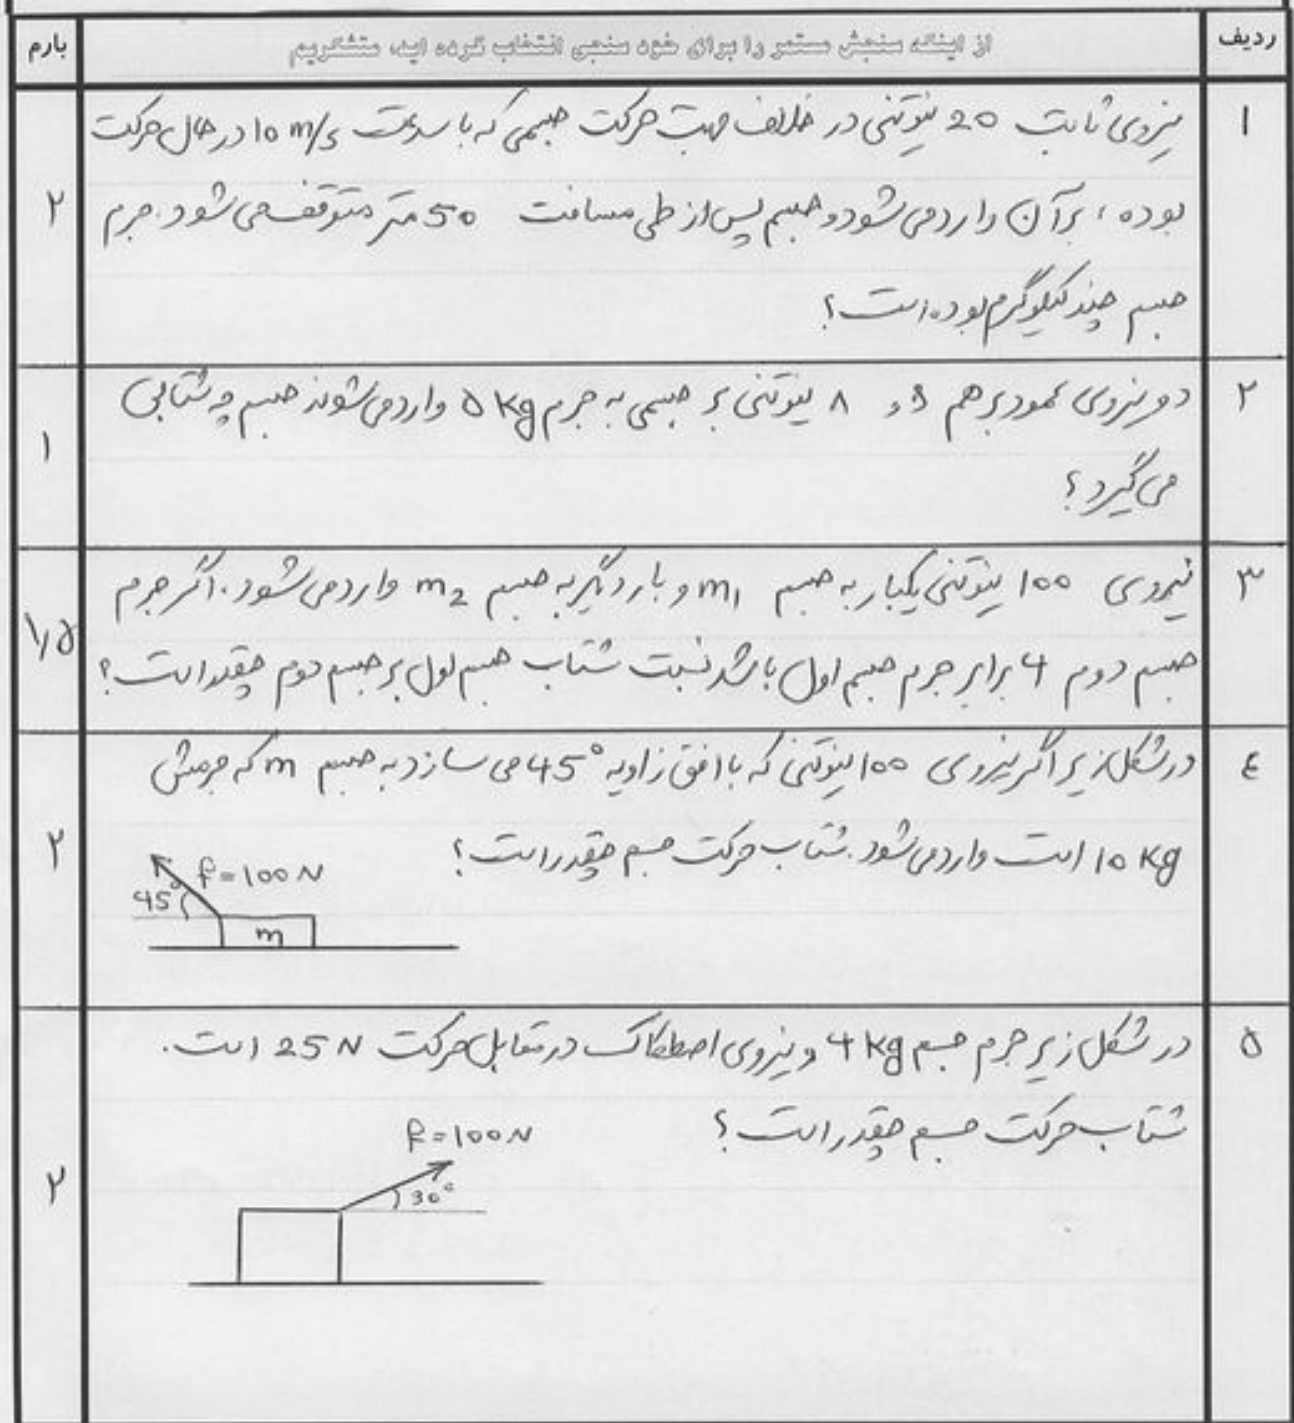 ردیف
از اینکه سنجش مستمر را برای خود سنجی انتخاب کرده اید، متشکریم
بارم
۱
نیروی ثابت 20 نیوتنی در خلاف جهت حرکت جسمی که با سرعت 10 m/s در حال حرکت
بوده ، برآن وارد می شود و جسم پس از طی مسافت 50 متر متوقف می شود. جرم
جسم چند کیلوگرم بوده است ؟
۲
۲
دو نیروی عمود برهم و ۸ نیوتنی بر جسمی به جرم ۵ kg وارد می شوند جسم چه شتابی
می گیرد ؟
۱
۳
نیروی 100 نیوتنی یکبار به جسم m1 و بار دیگر به جسم m2 وارد می شود. اگر جرم
جسم دوم 4 برابر جرم جسم اول باشد نسبت شتاب جسم اول بر جسم دوم چقدر است ؟
۱/۵
٤
در شکل زیر اگر نیروی 100 نیوتنی که با افق زاویه 45° می سازد به جسم m که جرمش
10 kg است وارد می شود. شتاب حرکت جسم چقدر است ؟
f = 100 N
45°
m
۲
۵
در شکل زیر جرم جسم 4 kg و نیروی اصطکاک در مقابل حرکت 25 N است.
شتاب حرکت جسم چقدر است ؟
f = 100 N
30°
۲